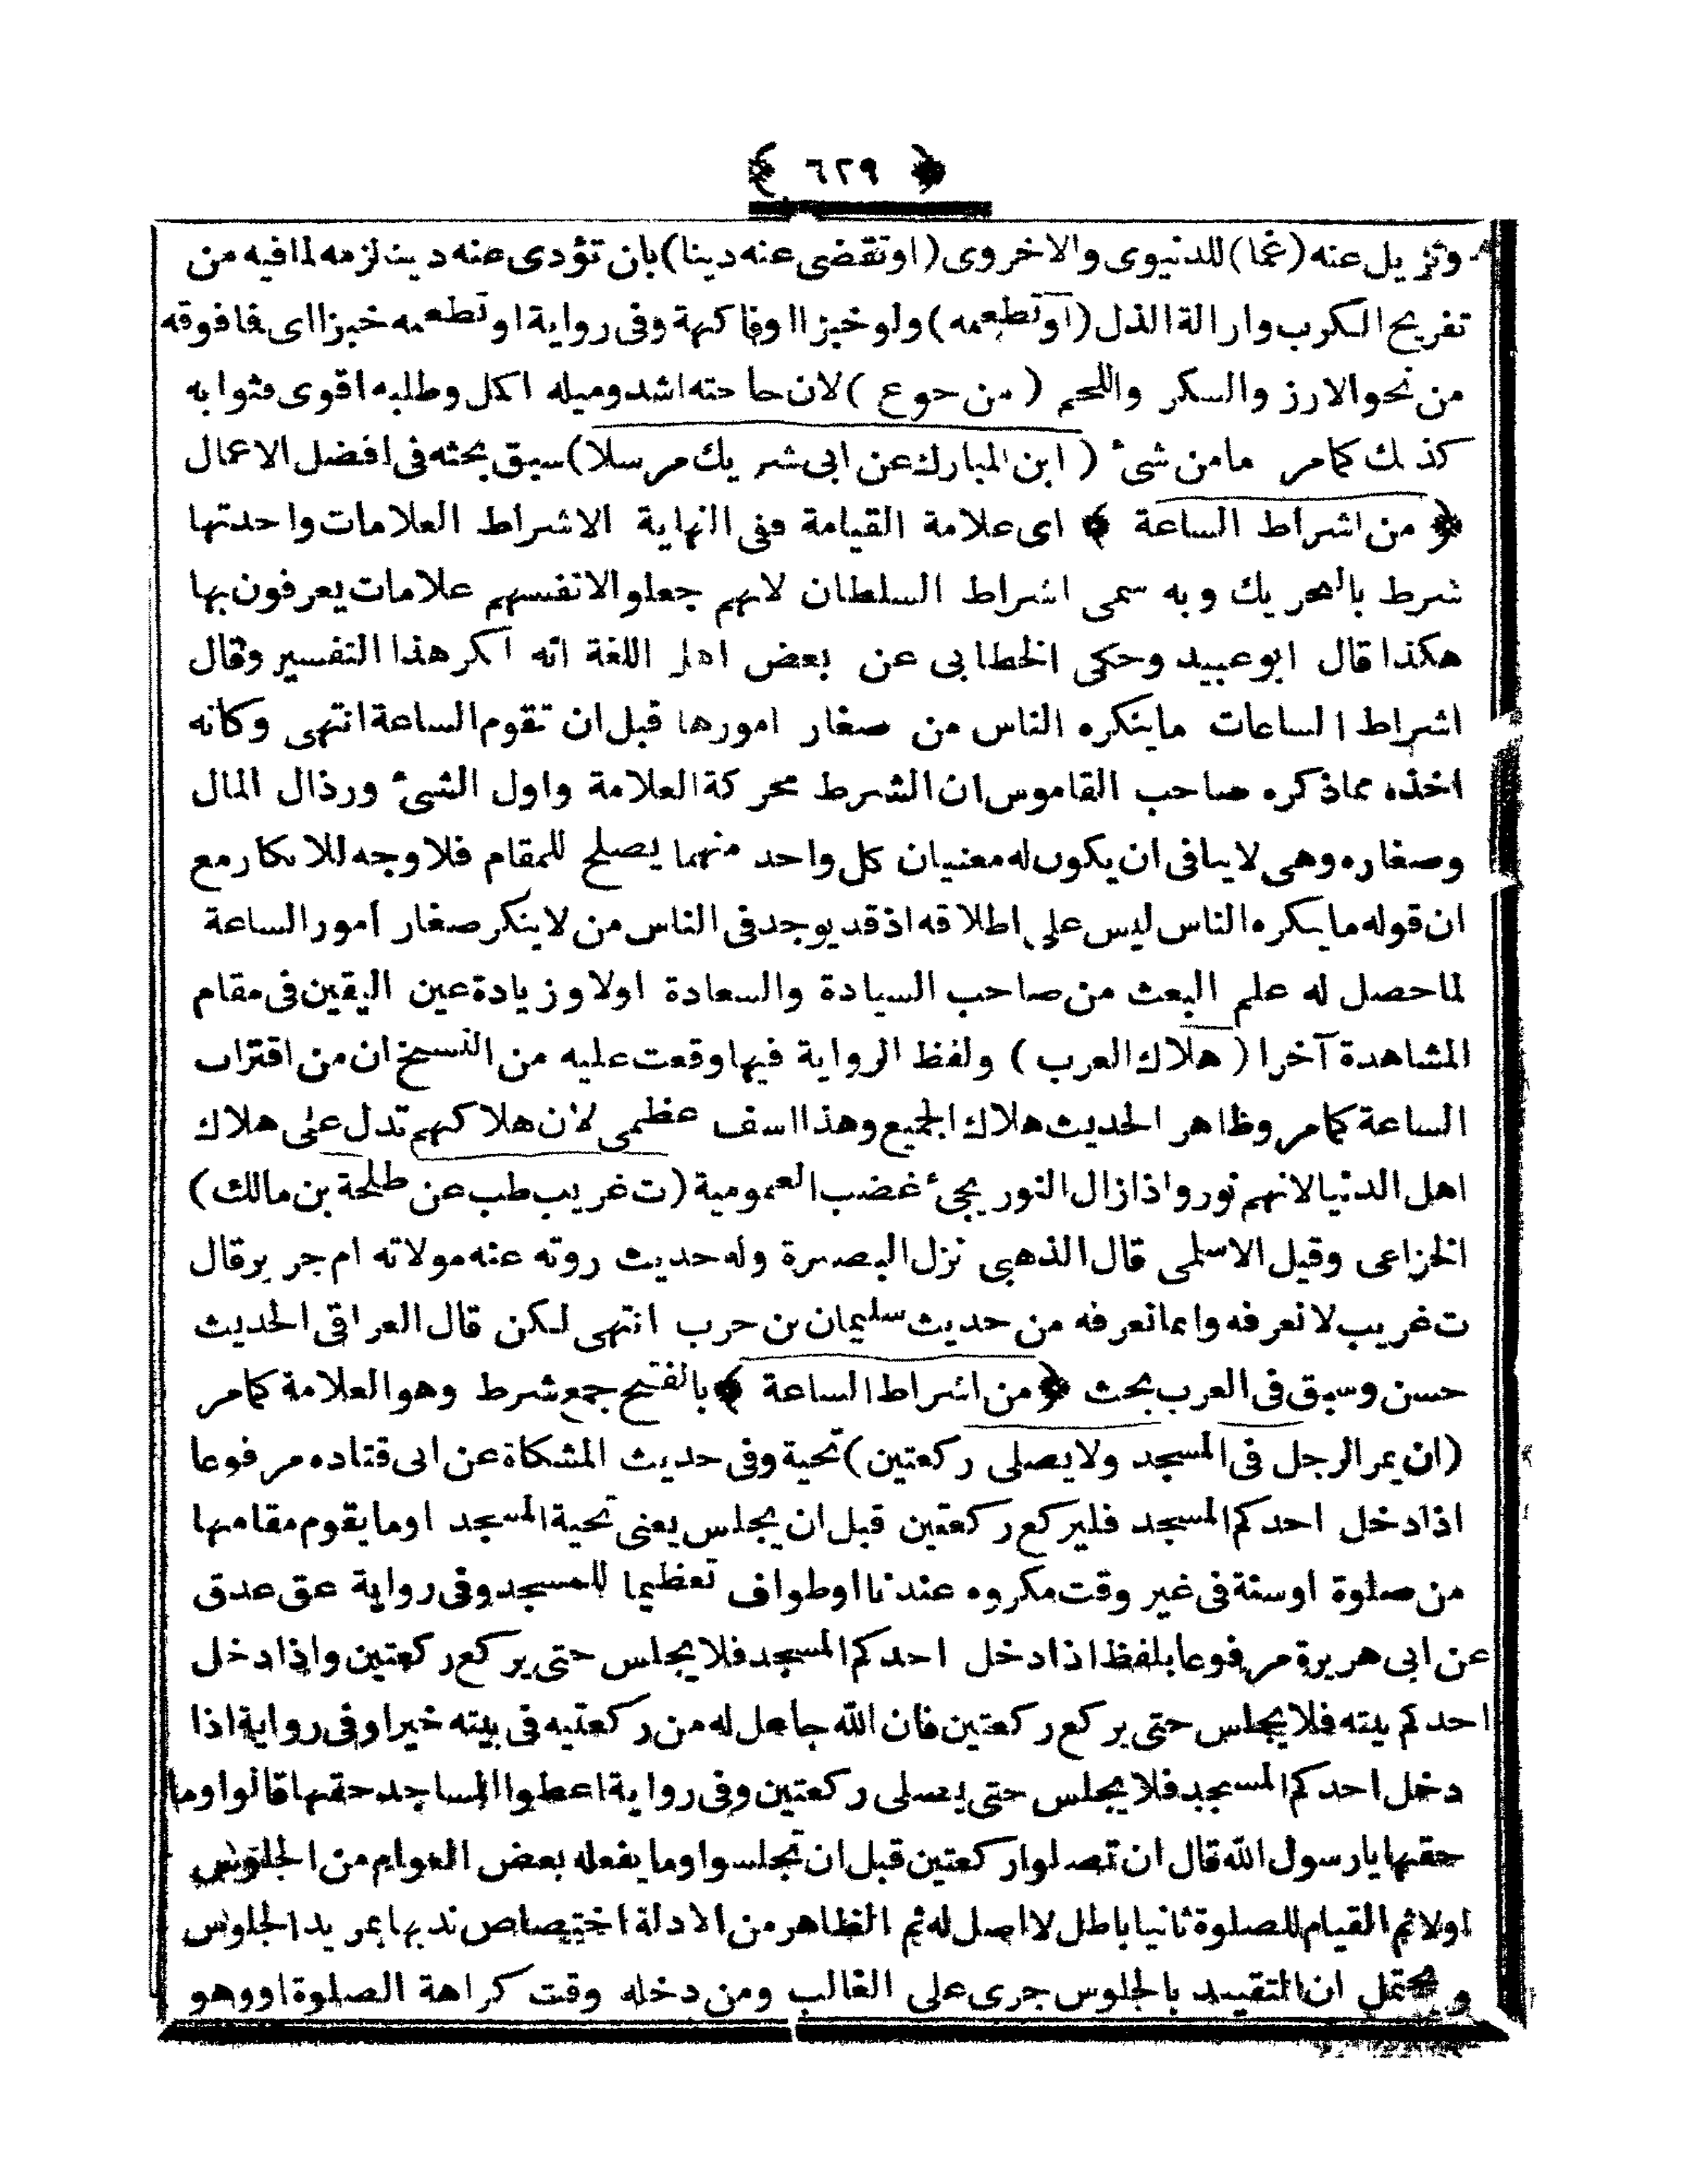 ﴿ ٦٢٩ ﴾
وتزيل عنه (غما) للدنيوى والاخروى (او تقضى عنه دينا) بان تؤدى عنه دينا لزمه لما فيه من
تفريح الكرب وازالة الذل (او تطعمه) ولو خبزا او فاكهة وفى رواية او تطعمه خبزا اى فما فوقه
من نحو الارز والسكر واللحم (من جوع) لان حاجته اشد وميله اكل وطلبه اقوى فثوابه
كذلك كما مر ما من شئ (ابن المبارك عن ابى شريك مرسلا) سبق بحثه فى افضل الاعمال
﴿ من اشراط الساعة ﴾ اى علامة القيامة ففى النهاية الاشراط العلامات واحدتها
شرط بالتحريك وبه سمى اشراط السلطان لانهم جعلوا لانفسهم علامات يعرفون بها
هكذا قال ابو عبيد وحكى الخطابى عن بعض اهل اللغة انه انكر هذا التفسير وقال
اشراط الساعات ما ينكره الناس من صغار امورها قبل ان تقوم الساعة انتهى وكانه
اخذه مما ذكره صاحب القاموس ان الشرط محركة العلامة واول الشئ ورذال المال
وصغاره وهى لا ينافى ان يكون له معنيان كل واحد منهما يصلح للمقام فلا وجه للانكار مع
ان قوله ما ينكره الناس ليس على اطلاقه اذ قد يوجد فى الناس من لا ينكر صغار امور الساعة
لما حصل له علم البعث من صاحب السيادة والسعادة اولا وزيادة عين اليقين فى مقام
المشاهدة آخرا (هلاك العرب) ولفظ الرواية فيها وقعت عليه من النسخ ان من اقتراب
الساعة كما مر وظاهر الحديث هلاك الجميع وهذا اسف عظمى لان هلاكهم تدل على هلاك
اهل الدنيا لانهم نور واذا زال النور يجئ غضب العمومية (ت غريب طب عن طلحة بن مالك)
الخزاعى وقيل الاسلمى قال الذهبى نزل البصرة وله حديث روته عنه مولاته ام جرير قال
ت غريب لا نعرفه وانما نعرفه من حديث سليمان بن حرب انتهى لكن قال العراقى الحديث
حسن وسبق فى العرب بحث ﴿ من اشراط الساعة ﴾ بالفتح جمع شرط وهو العلامة كما مر
(ان يمر الرجل فى المسجد ولا يصلى ركعتين) تحية وفى حديث المشكاة عن ابى قتاده مرفوعا
اذا دخل احدكم المسجد فليركع ركعتين قبل ان يجلس يعنى تحية المسجد او ما يقوم مقامها
من صلوة او سنة فى غير وقت مكروه عندنا او طواف تعظيما للمسجد وفى رواية عق عد ق
عن ابى هريرة مرفوعا بلفظ اذا دخل احدكم المسجد فلا يجلس حتى يركع ركعتين واذا دخل
احدكم بيته فلا يجلس حتى يركع ركعتين فان الله جاعل له من ركعتيه فى بيته خيرا وفى رواية اذا
دخل احدكم المسجد فلا يجلس حتى يصلى ركعتين وفى رواية اعطوا المساجد حقها قالوا وما
حقها يا رسول الله قال ان تصلوا ركعتين قبل ان تجلسوا وما يفعله بعض العوام من الجلوس
اولا ثم القيام للصلوة ثانيا باطل لا اصل له ثم الظاهر من الادلة اختصاص ندبها بمريد الجلوس
ويحتمل ان التقييد بالجلوس جرى على الغالب ومن دخله وقت كراهة الصلوة او وهو